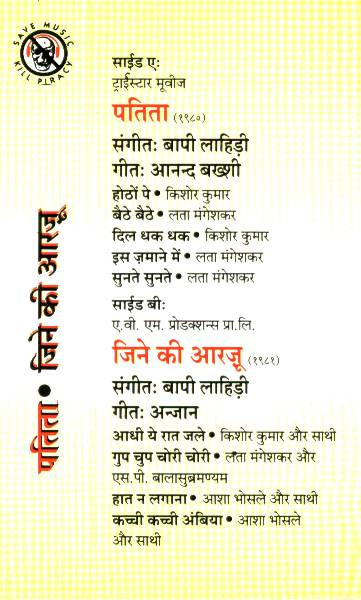 SAVE MUSIC
KILL PIRACY
पतिता • जिने की आरज़ू
साईड ए:
ट्राईस्टार मूवीज
पतिता (१९८०)
संगीत: बापी लाहिड़ी
गीत: आनन्द बख्शी
होठों पे • किशोर कुमार
बैठे बैठे • लता मंगेशकर
दिल धक धक • किशोर कुमार
इस ज़माने में • लता मंगेशकर
सुनते सुनते • लता मंगेशकर
साईड बी:
ए.वी. एम. प्रोडक्शन्स प्रा.लि.
जिने की आरज़ू (१९८१)
संगीत: बापी लाहिड़ी
गीत: अन्जान
आधी ये रात जले • किशोर कुमार और साथी
गुप चुप चोरी चोरी • लता मंगेशकर और
एस.पी. बालासुब्रमण्यम
हात न लगाना • आशा भोसले और साथी
कच्ची कच्ची अंबिया • आशा भोसले
और साथी